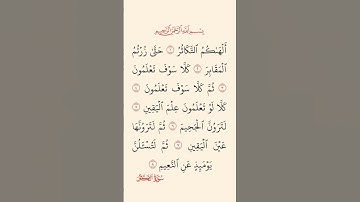 بِسْمِ اللَّهِ الرَّحْمَٰنِ الرَّحِيمِ
أَلْهَاكُمُ التَّكَاثُرُ ١ حَتَّىٰ زُرْتُمُ
الْمَقَابِرَ ٢ كَلَّا سَوْفَ تَعْلَمُونَ
٣ ثُمَّ كَلَّا سَوْفَ تَعْلَمُونَ ٤
كَلَّا لَوْ تَعْلَمُونَ عِلْمَ الْيَقِينِ ٥
لَتَرَوُنَّ الْجَحِيمَ ٦ ثُمَّ لَتَرَوُنَّهَا
عَيْنَ الْيَقِينِ ٧ ثُمَّ لَتُسْأَلُنَّ
يَوْمَئِذٍ عَنِ النَّعِيمِ ٨
سُورَةُ التَّكَاثُرِ